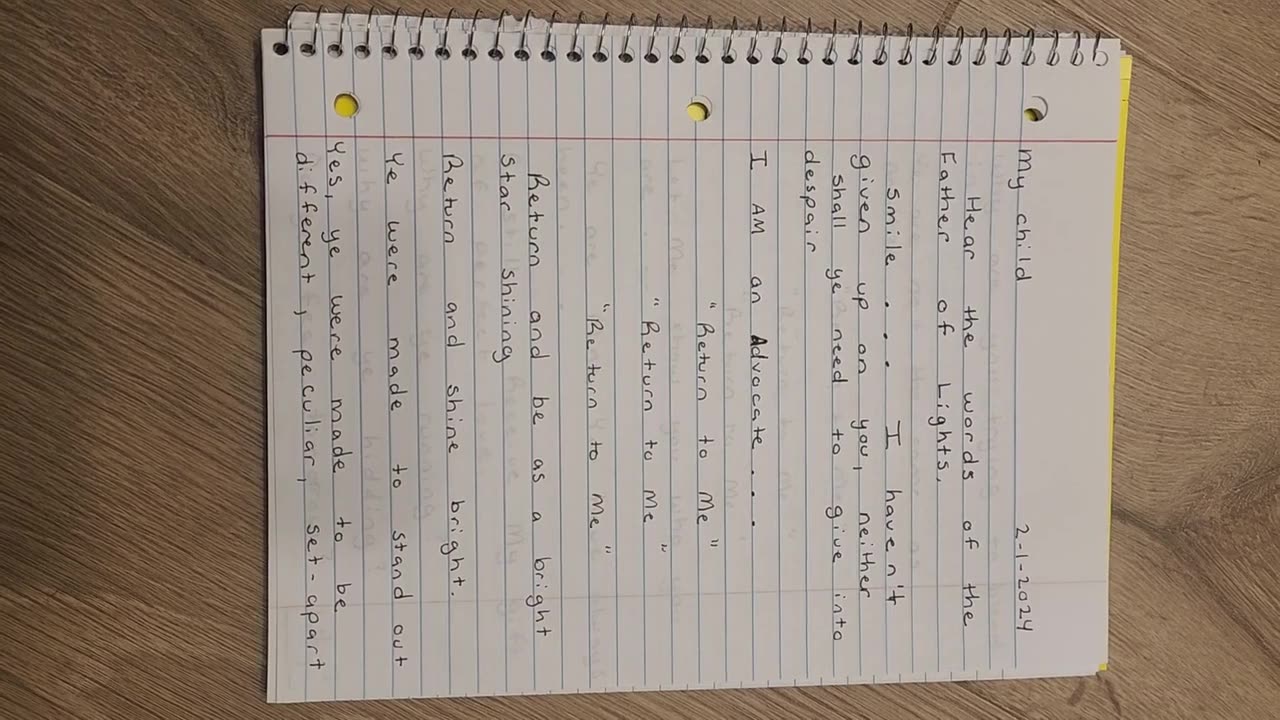 My child 2-1-2024
Hear the words of the
Father of Lights.
Smile . . . I haven't
given up on you, neither
shall ye need to give into
despair
I AM an Advocate . . .
"Return to Me"
"Return to Me"
"Return to Me"
Return and be as a bright
star shining
Return and shine bright.
Ye were made to stand out
Yes, ye were made to be
different, peculiar, set-apart